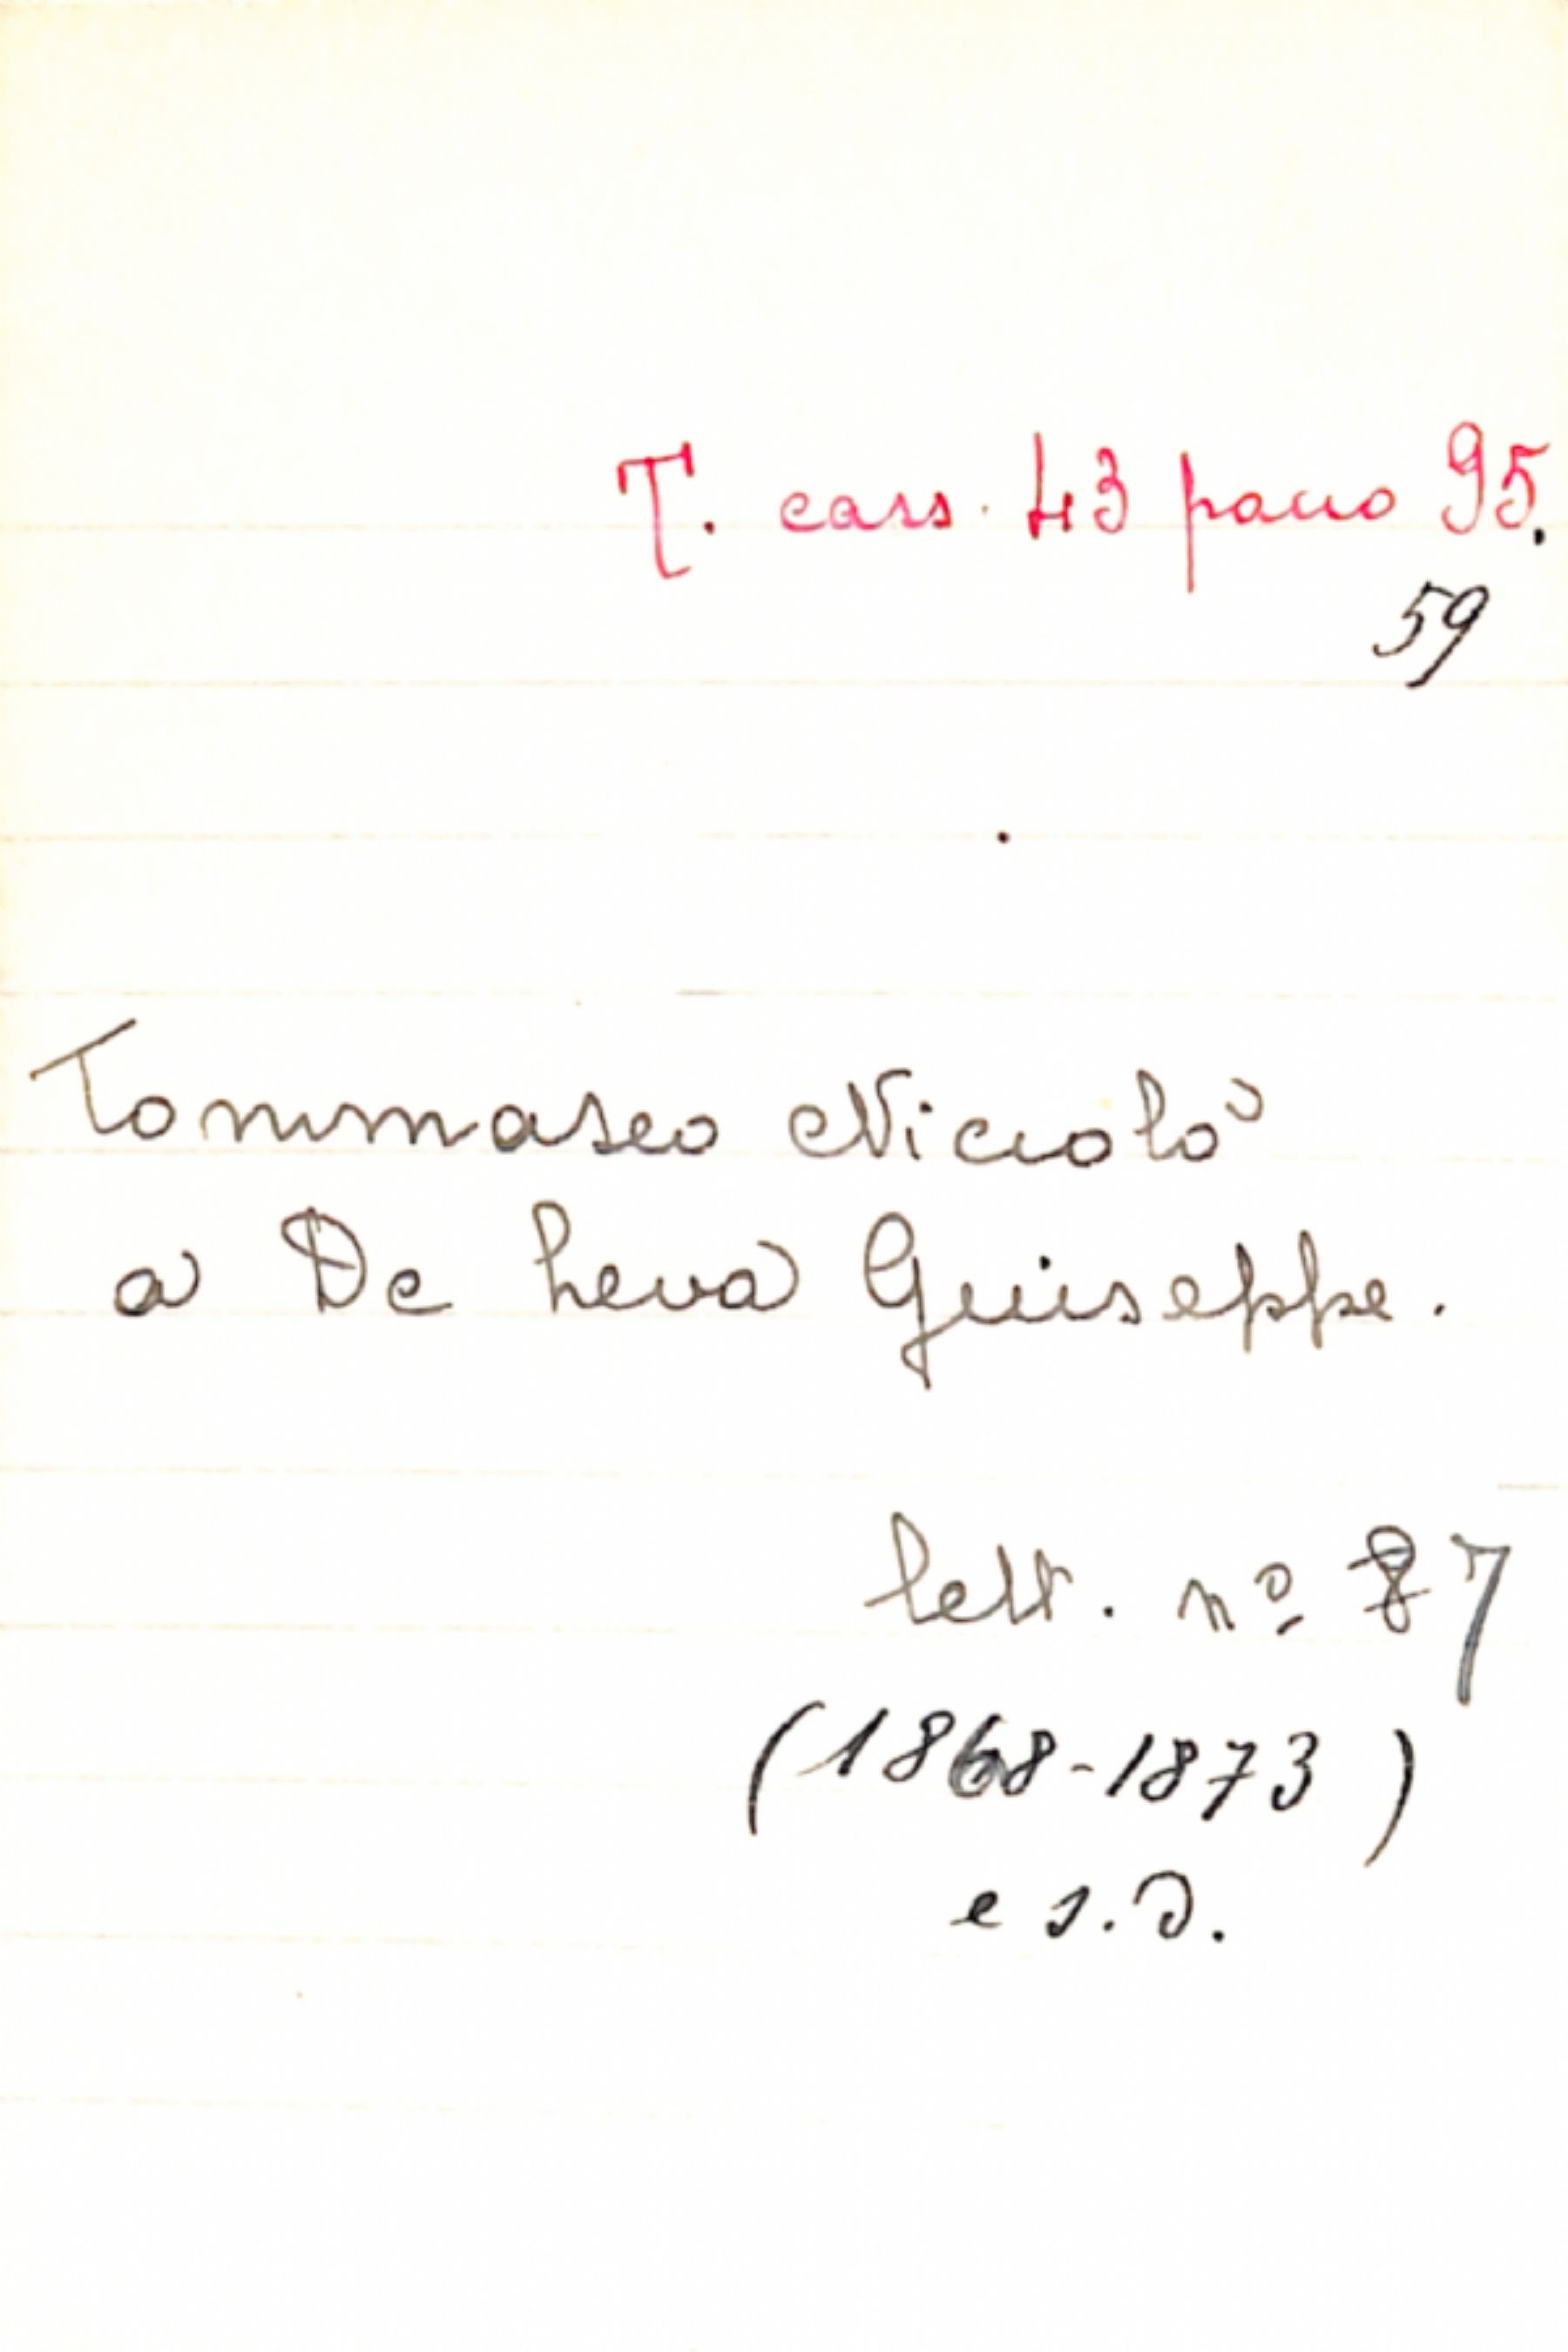 T. cass. 43 pacco 95.
59
Tommaseo Niccolò
a De Leva Giuseppe.
lett. nº 7
(1868-1873)
e s.d.